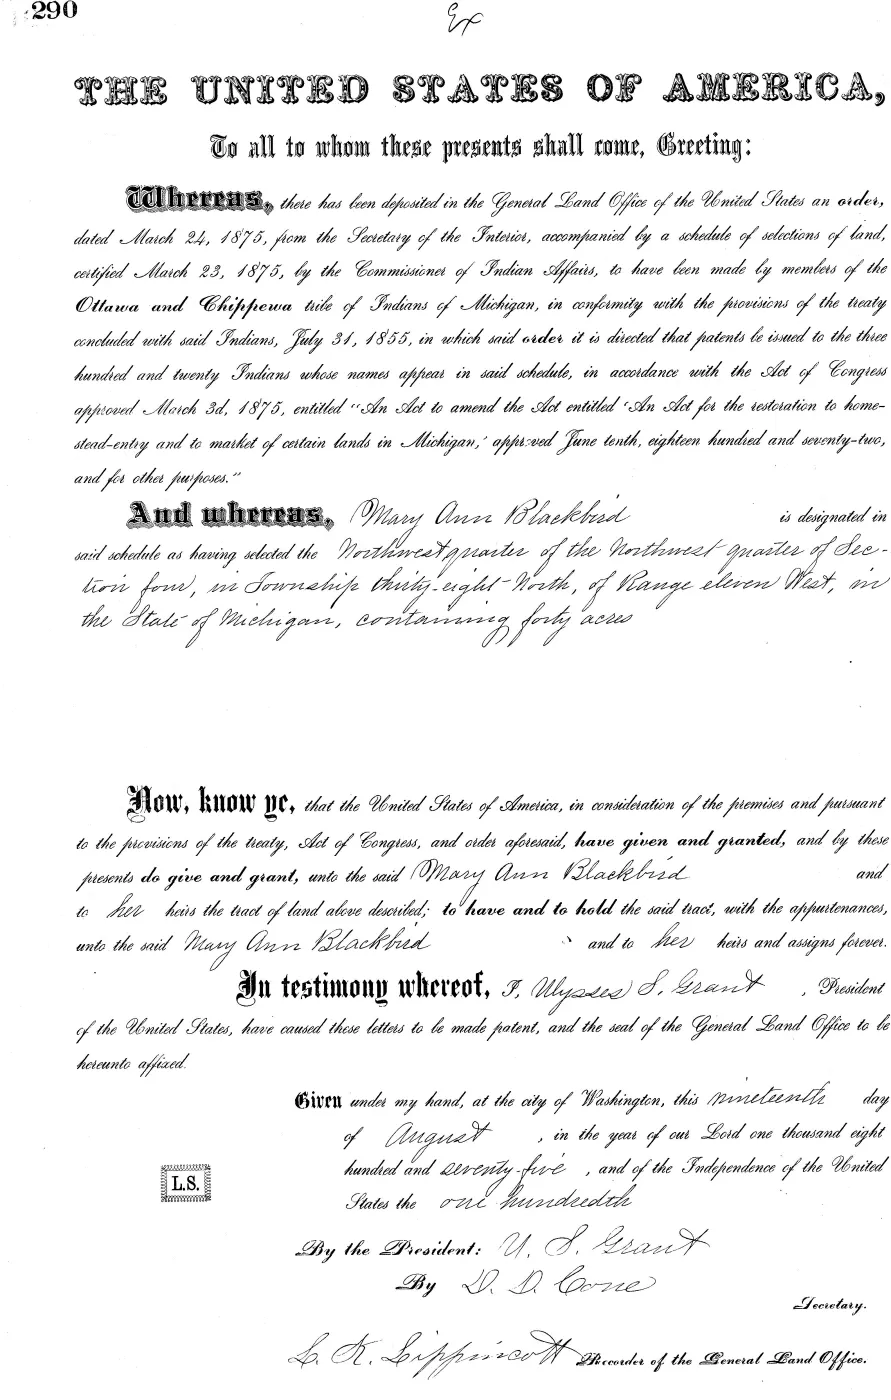 290
Ex
THE UNITED STATES OF AMERICA,
To all to whom these presents shall come, Greeting:
Whereas, there has been deposited in the General Land Office of the United States an order,
dated March 24, 1875, from the Secretary of the Interior, accompanied by a schedule of selections of land,
certified March 23, 1875, by the Commissioner of Indian Affairs, to have been made by members of the
Ottawa and Chippewa tribe of Indians of Michigan, in conformity with the provisions of the treaty
concluded with said Indians, July 31, 1855, in which said order it is directed that patents be issued to the three
hundred and twenty Indians whose names appear in said schedule, in accordance with the Act of Congress
approved March 3d, 1875, entitled "An Act to amend the Act entitled 'An Act for the restoration to home-
stead-entry and to market of certain lands in Michigan,' approved June tenth, eighteen hundred and seventy-two,
and for other purposes."
And whereas, Mary Ann Blackbird is designated in
said schedule as having selected the Northwest quarter of the Northwest quarter of Sec-
tion four, in Township thirty-eight North, of Range eleven West, in
the State of Michigan, containing forty acres
Now, know ye, that the United States of America, in consideration of the premises and pursuant
to the provisions of the treaty, Act of Congress, and order aforesaid, have given and granted, and by these
presents do give and grant, unto the said Mary Ann Blackbird and
to her heirs the tract of land above described; to have and to hold the said tract, with the appurtenances,
unto the said Mary Ann Blackbird and to her heirs and assigns forever.
In testimony whereof, I, Ulysses S. Grant, President
of the United States, have caused these letters to be made patent, and the seal of the General Land Office to be
hereunto affixed.
Given under my hand, at the city of Washington, this nineteenth day
of August, in the year of our Lord one thousand eight
hundred and seventy-five, and of the Independence of the United
L.S.
States the one hundredth
By the President: U. S. Grant
By D. D. Cone
Secretary.
L. K. Lippincott Recorder of the General Land Office.